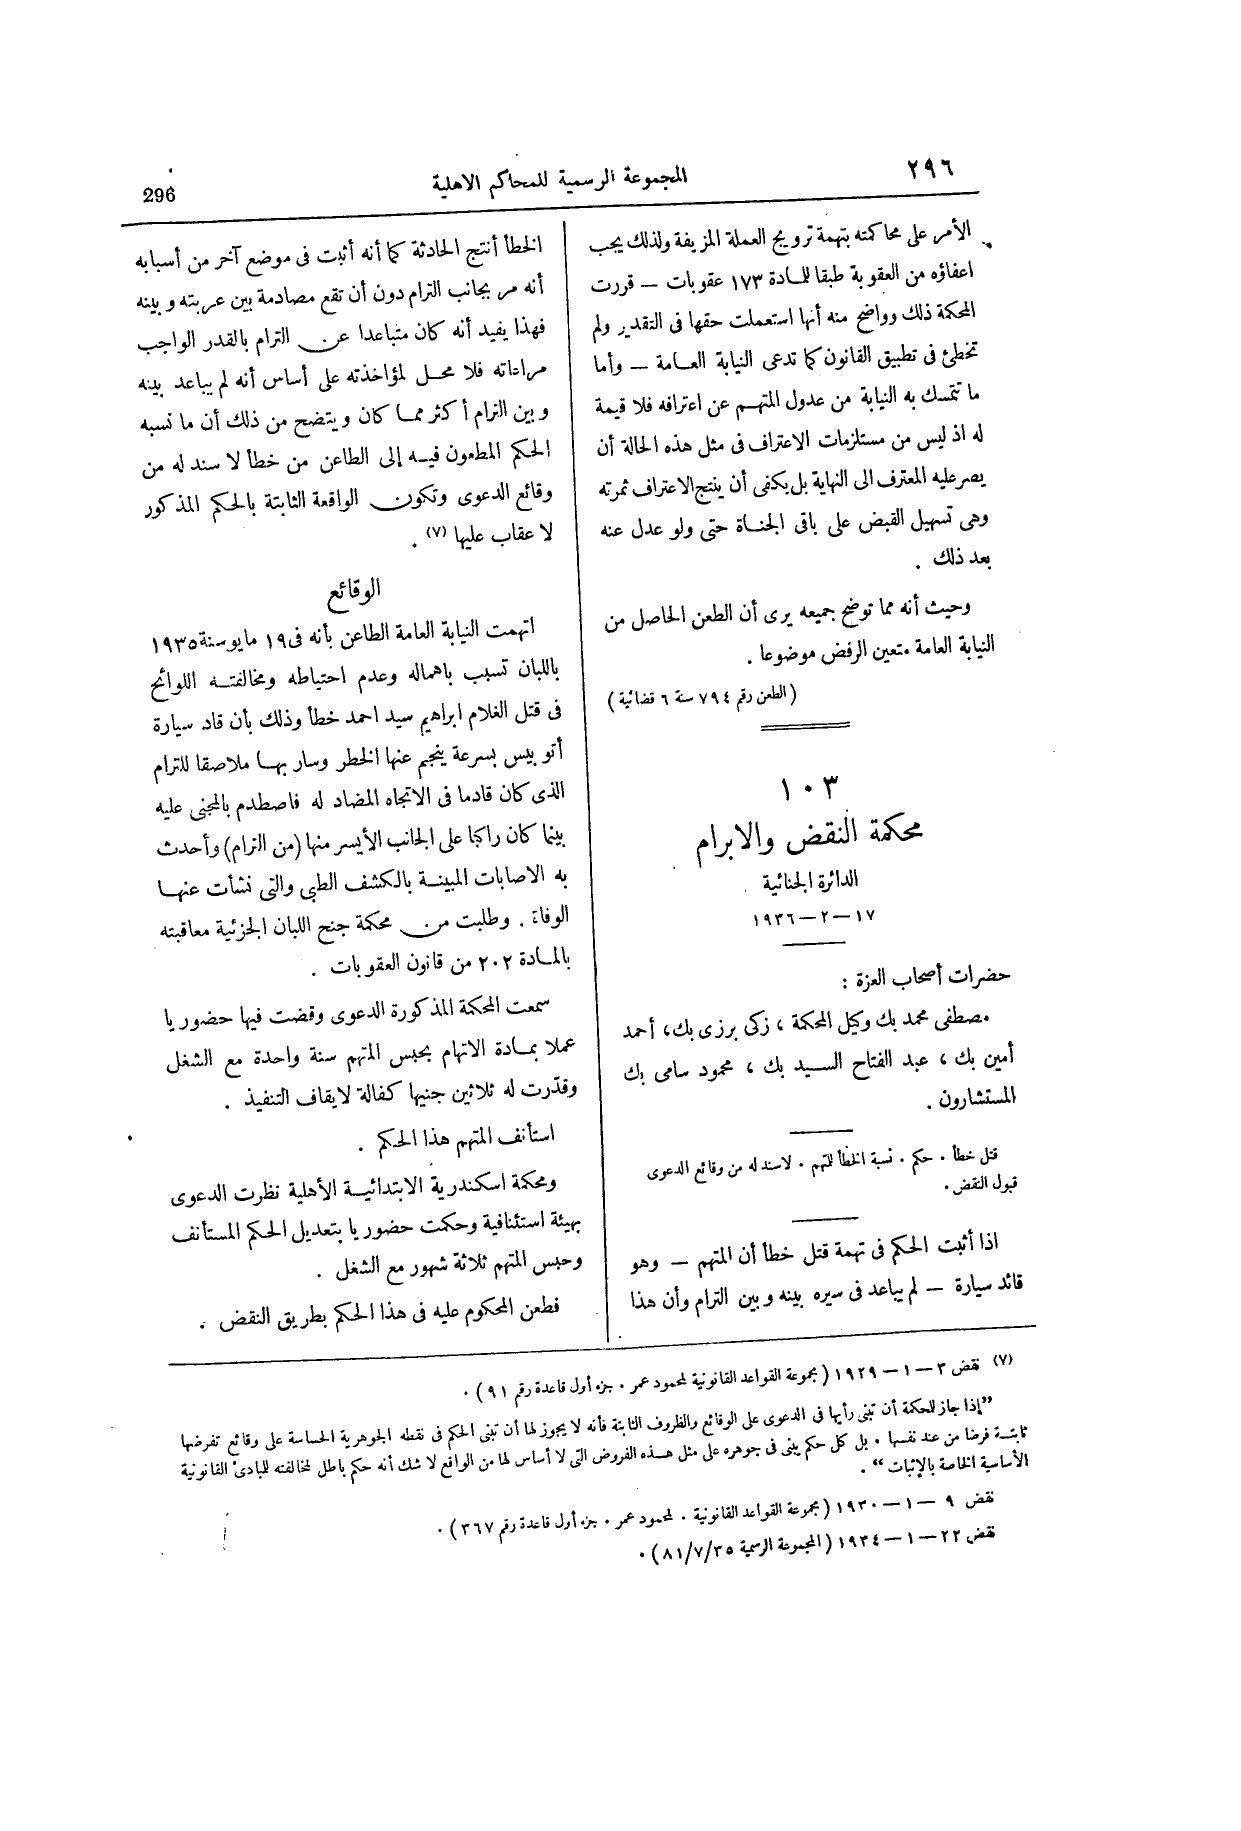 ٢٩٦
المجموعة الرسمية للمحاكم الاهلية
296
الأمر على محاكمته بتهمة ترويج العملة المزيفة ولذلك يجب
اعفاؤه من العقوبة طبقا للمادة ١٧٣ عقوبات — قررت
المحكمة ذلك وواضح منه أنها استعملت حقها فى التقدير ولم
تخطئ فى تطبيق القانون كما تدعى النيابة العامة — وأما
ما تتمسك به النيابة من عدول المتهم عن اعترافه فلا قيمة
له اذ ليس من مستلزمات الاعتراف فى مثل هذه الحالة أن
يصر عليه المعترف الى النهاية بل يكفى أن ينتج الاعتراف ثمرته
وهى تسهيل القبض على باقى الجناة حتى ولو عدل عنه
بعد ذلك .
وحيث أنه مما توضح جميعه يرى أن الطعن الحاصل من
النيابة العامة متعين الرفض موضوعا .
( الطعن رقم ٧٩٤ سنة ٦ قضائية )
١٠٣
محكمة النقض والابرام
الدائرة الجنائية
١٧ — ٢ — ١٩٣٦
حضرات أصحاب العزة :
مصطفى محمد بك وكيل المحكمة ، زكى برزى بك ، أحمد
أمين بك ، عبد الفتاح السيد بك ، محمود سامى بك
المستشارون .
قتل خطأ . حكم . نسبة الخطأ للمتهم . لا سند له من وقائع الدعوى
قبول النقض .
اذا أثبت الحكم فى تهمة قتل خطأ أن المتهم — وهو
قائد سيارة — لم يباعد فى سيره بينه وبين الترام وأن هذا
الخطأ أنتج الحادثة كما أنه أثبت فى موضع آخر من أسبابه
أنه مر بجانب الترام دون أن تقع مصادمة بين عربته وبينه
فهذا يفيد أنه كان متباعدا عن الترام بالقدر الواجب
مراعاته فلا محل لمؤاخذته على أساس أنه لم يباعد بينه
وبين الترام أكثر مما كان ويتضح من ذلك أن ما نسبه
الحكم المطعون فيه إلى الطاعن من خطأ لا سند له من
وقائع الدعوى وتكون الواقعة الثابتة بالحكم المذكور
لا عقاب عليها (٧) .
الوقائع
اتهمت النيابة العامة الطاعن بأنه فى ١٩ مايو سنة ١٩٣٥
باللبان تسبب باهماله وعدم احتياطه ومخالفته اللوائح
فى قتل الغلام ابراهيم سيد احمد خطأ وذلك بأن قاد سيارة
أتوبيس بسرعة ينجم عنها الخطر وسار بها ملاصقا للترام
الذى كان قادما فى الاتجاه المضاد له فاصطدم بالمجنى عليه
بينما كان راكبا على الجانب الأيسر منها (من الترام) وأحدث
به الاصابات المبينة بالكشف الطبى والتى نشأت عنها
الوفاة . وطلبت من محكمة جنح اللبان الجزئية معاقبته
بالمادة ٢٠٢ من قانون العقوبات .
سمعت المحكمة المذكورة الدعوى وقضت فيها حضوريا
عملا بمادة الاتهام بحبس المتهم سنة واحدة مع الشغل
وقدّرت له ثلاثين جنيها كفالة لايقاف التنفيذ .
استأنف المتهم هذا الحكم .
ومحكمة اسكندرية الابتدائية الأهلية نظرت الدعوى
بهيئة استئنافية وحكمت حضوريا بتعديل الحكم المستأنف
وحبس المتهم ثلاثة شهور مع الشغل .
فطعن المحكوم عليه فى هذا الحكم بطريق النقض .
(٧) نقض ٣ — ١ — ١٩٢٩ ( مجموعة القواعد القانونية لمحمود عمر . جزء أول قاعدة رقم ٩١ ) .
”إذا جاز للمحكمة أن تبنى رأيها فى الدعوى على الوقائع والظروف الثابتة فأنه لا يجوز لها أن تبنى الحكم فى نقطه الجوهرية الحساسة على وقائع تفرضها
ثابتة فرضا من عند نفسها . بل كل حكم يبنى فى جوهره على مثل هذه الفروض التى لا أساس لها من الواقع لا شك أنه حكم باطل لمخالفته للبادئ القانونية
الأساسية الخاصة بالإثبات“ .
نقض ٩ — ١ — ١٩٣٠ ( مجموعة القواعد القانونية . لمحمود عمر . جزء أول قاعدة رقم ٣٦٧ ) .
نقض ٢٢ — ١ — ١٩٣٤ ( المجموعة الرسمية ٨١/٧/٣٥ ) .